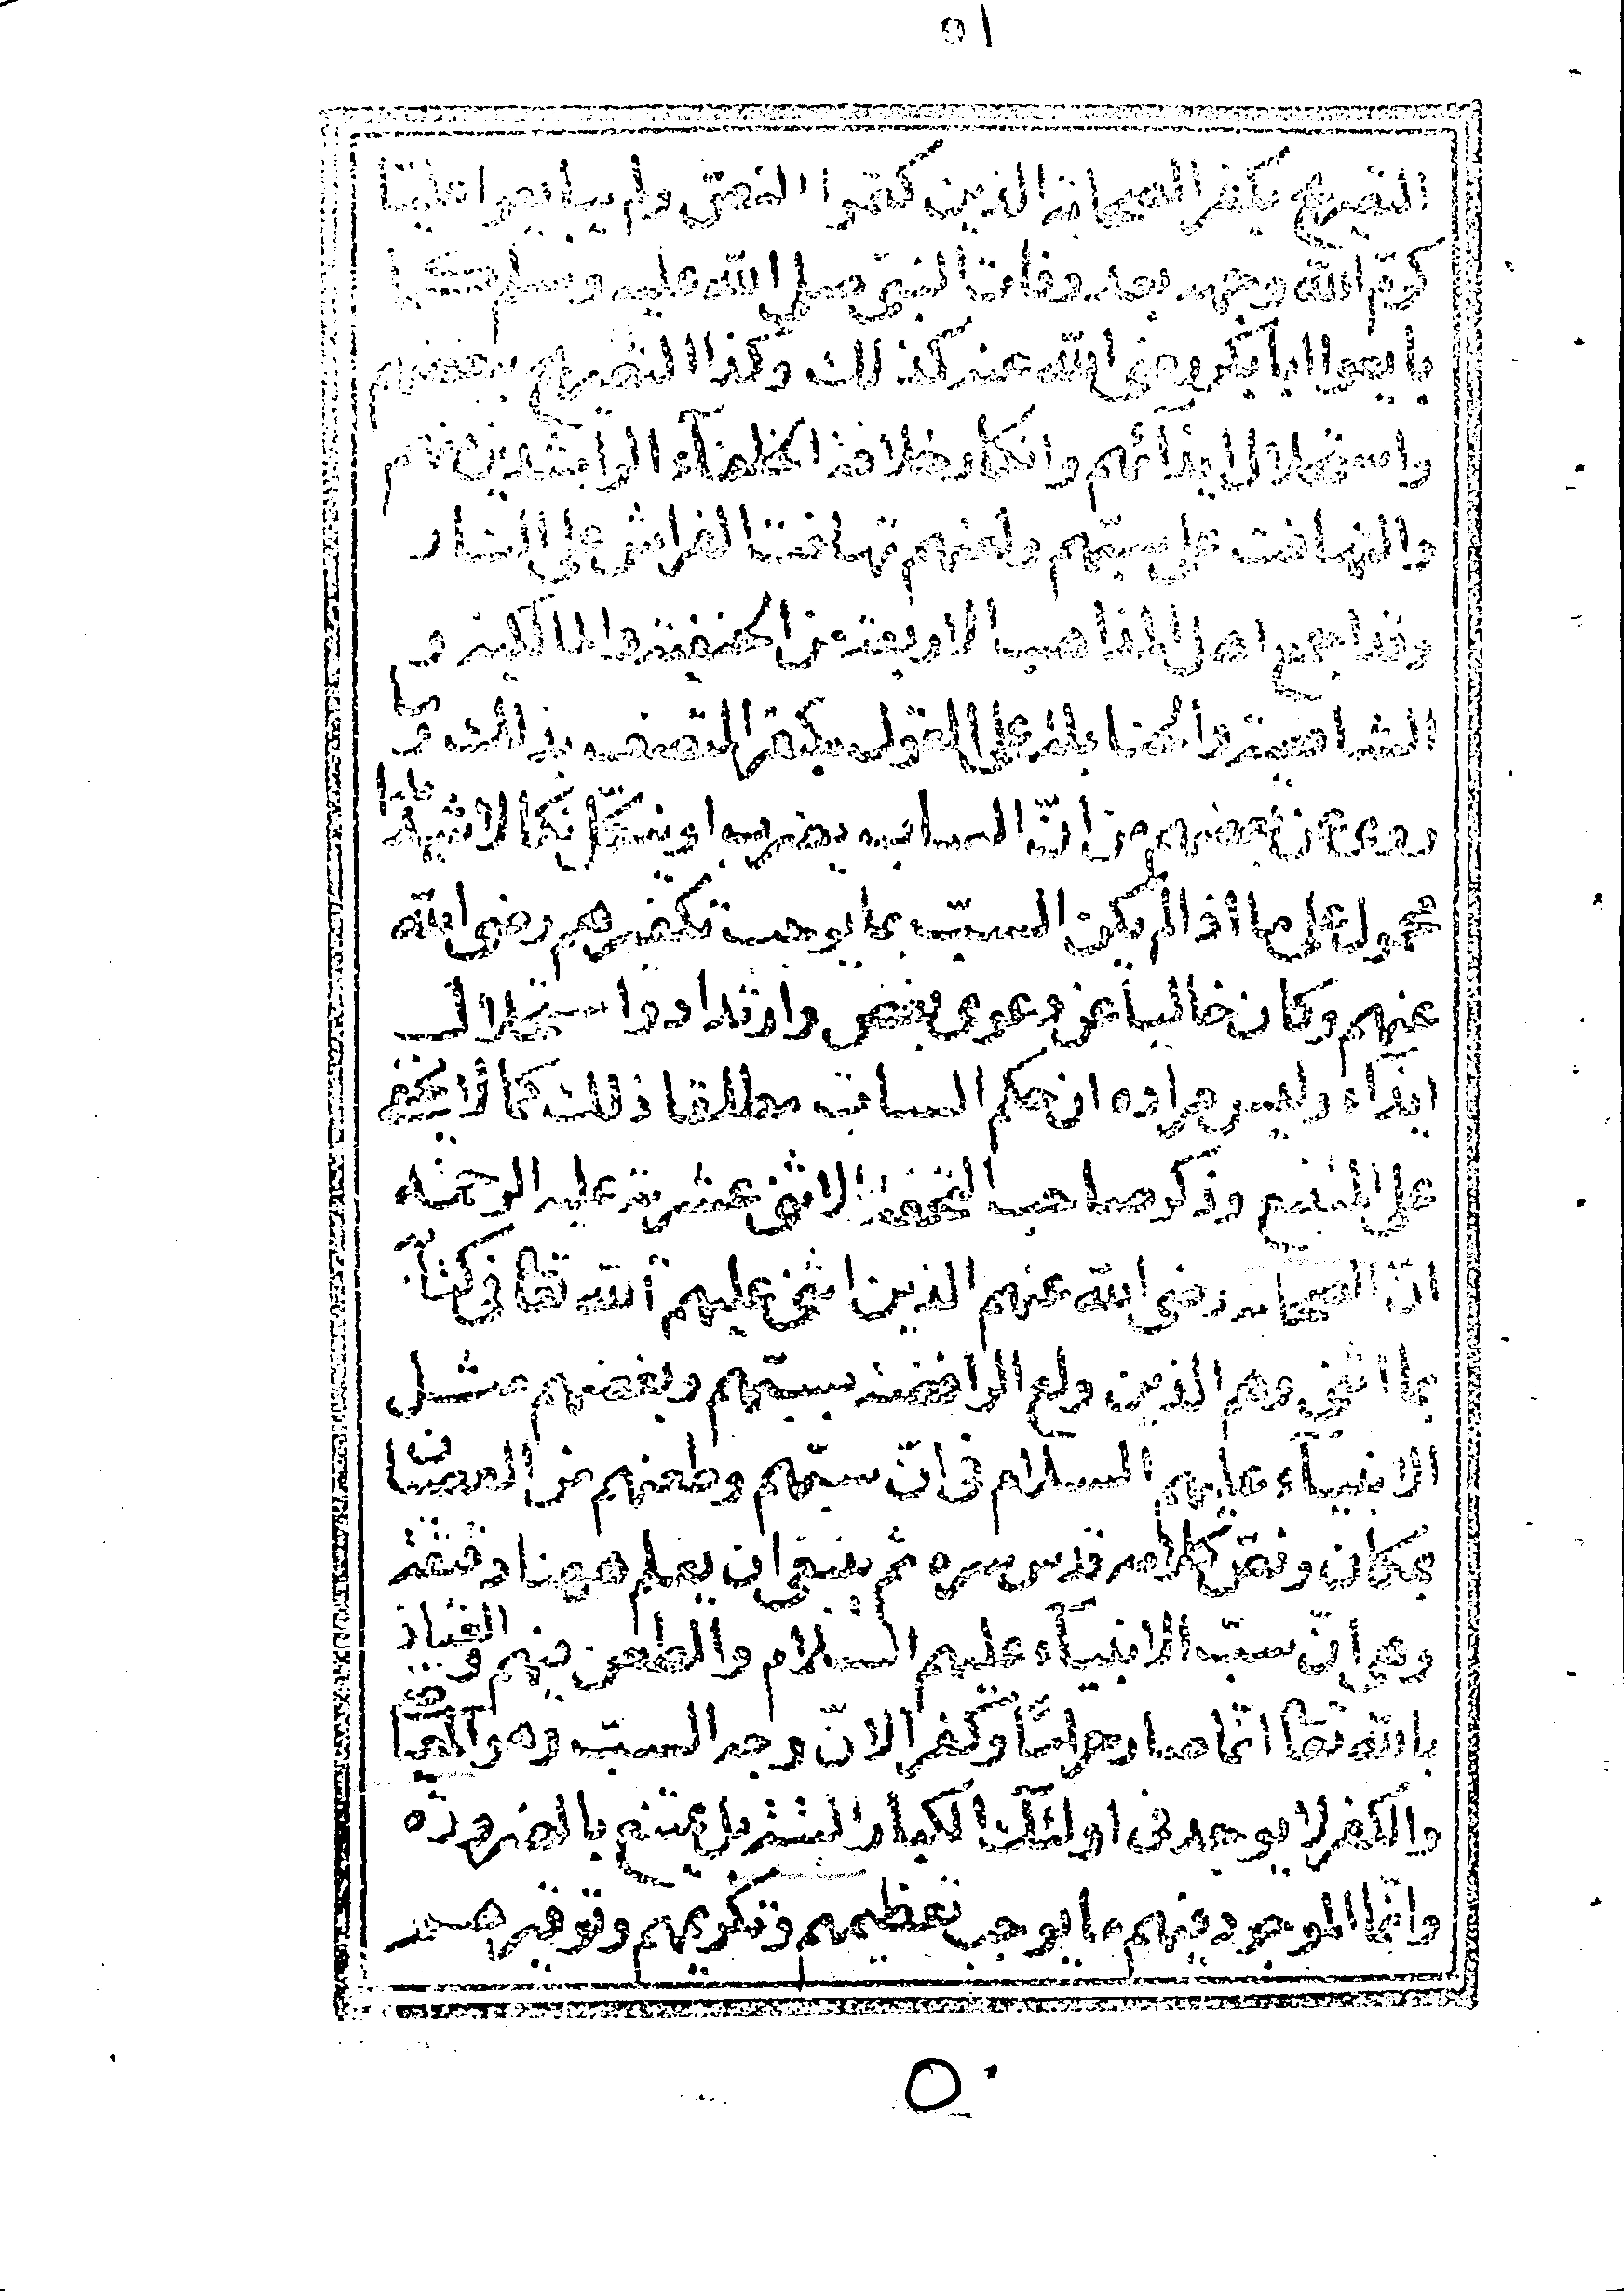 ٥١
التصريح بكفر الصحابة الذين كتموا النص ولم يبايعوا عليا
كرم الله وجهه بعد وفات النبي صلى الله عليه وسلم كما
بايعوا ابا بكر رضي الله عنه كذلك وكذا التصريح ببغضهم
واستحلال ايذائهم وانكار خلافة الخلفآء الراشدين منهم
والتهافت على سبهم ولعنهم تهافت الفراش على النار
وقد اجمع اهل المذاهب الاربعة من الحنفية والمالكية و
الشافعية والحنابلة على القول بكفر المتصف بذلك وما
روي عن بعضهم من ان الساب يضرب او ينكل نكالا شديدا
محمول على ما اذا لم يكن السب بما يوجب تكفيرهم رضي الله
عنهم وكان خاليا عن دعوى بغض وارتداد واستحلال
ايذآء وليس مراده ان حكم الساب مطلقا ذلك كما لا يخفى
على المتتبع وذكر صاحب التحفة الاثنى عشرية عليه الرحمة
ان الصحابة رضي الله عنهم الذين اثنى عليهم الله تعالى في كتابه
بما اثنى وهم الذين ولع الرافضة بسبهم وبغضهم مثل
الانبيآء عليهم السلام فان سبهم وطعنهم من العصيان
بمكان ونص كلامه قدس سره ثم ينبغي ان يعلم ههنا دقيقة
وهي ان سب الانبيآء عليهم السلام والطعن فيهم والعياذ
بالله تعالى انما صار حراما وكفرا لان وجه السب وهو المعاصي
والكفر لا يوجد في اولئك الكبار البتة بل يمتنع بالضرورة
وانما الموجود فيهم ما يوجب تعظيمهم وتكريمهم وتوقيرهم
٥٠